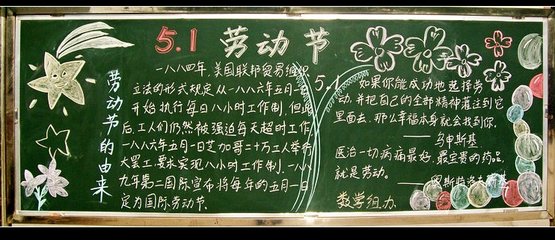 5.1 劳动节
劳动节的由来
一八八四年,美国联邦贸易组织
立法的形式规定从一八八六年五月一日
开始执行每日八小时工作制,但此
后,工人们仍然被强迫每天超时工作
一八八六年五月一日芝加哥二十万工人举行
大罢工要求实现八小时工作制,一八八
九年第二国际宣布将每年的五月一日
定为国际劳动节.
5.1
如果你能成功地选择劳
动,并把自己的全部精神灌注到它
里面去,那么幸福本身就会找到你.
——乌申斯基
医治一切病痛最好,最宝贵的药品,
就是劳动。
数学组办